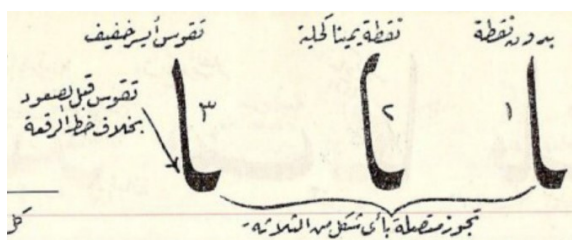 بدون نقطة
نقطة يمينا كحلية
تقوس أيسر خفيف
١
٢
٣
تقوس قبل الصعود
بخلاف خط الرقعة
تجوز متصلة بأى شكل من الثلاثة
كل